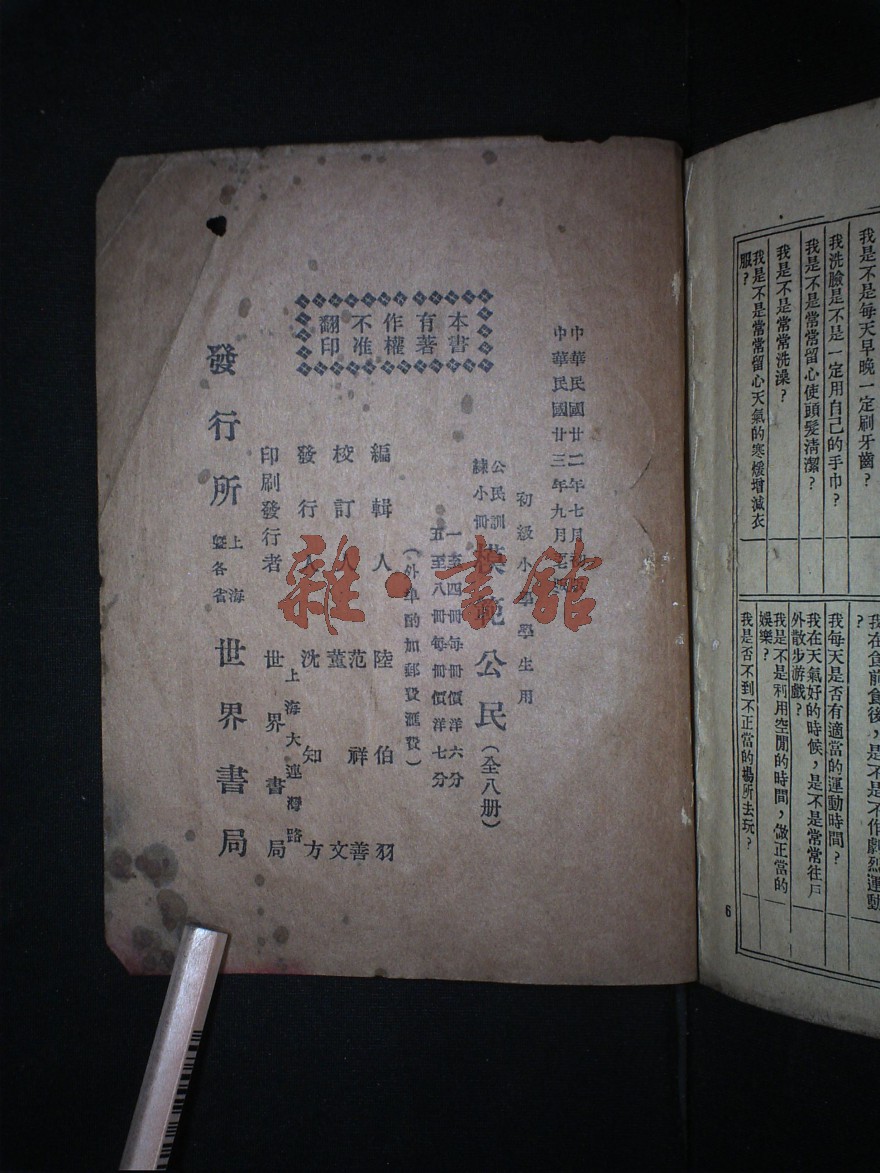 我是不是每天早晚一定刷牙齒？
我洗臉是不是一定用自己的手巾？
我是不是常常留心使頭髮清潔？
我是不是常常洗澡？
我是不是常常留心天氣的寒煖增減衣
服？
我在食前食後，是不是不作劇烈運動
？
我每天是否有適當的運動時間？
我在天氣好的時候，是不是常常往戶
外散步游戲？
我是不是利用空閒的時間，做正當的
娛樂？
我是否不到不正當的場所去玩？
6
中華民國廿二年七月
中華民國廿三年九月
初級小學學生用
公民訓
練小冊
模範公民（全八册）
一至四冊每冊價洋六分
五至八冊每冊價洋七分
（外埠酌加郵費滙費）
本書
有著
作權
不准
翻印
編輯人 陸伯羽
校訂人 范祥善
董文
發行人 沈知方
上海大連灣路
印刷發行者 世界書局
發行所 上海
曁各省
世界書局
雜·書館